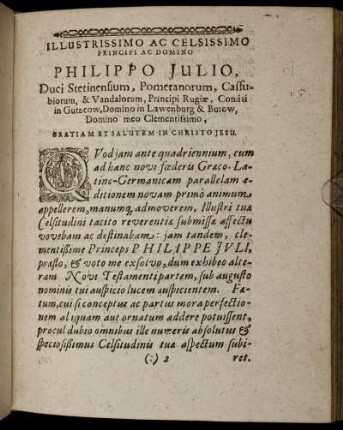 ILLUSTRISSIMO AC CELSISSIMO
PRINCIPI AC DOMINO
PHILIPPO JULIO,
Duci Stetinensium, Pomeranorum, Cassu-
biorum, & Vandalorum, Principi Rugiæ, Comiti
in Gutzcow, Domino in Lawenburg & Butow,
Domino meo Clementissimo,
GRATIAM ET SALUTEM IN CHRISTO JESU.
QVod jam ante quadriennium, cum
ad hanc novi fœderis Græco-La-
tino-Germanicam parallelam e-
ditionem novam primò animum
appellerem, manumq́ admoverem, Illustri tuæ
Celsitudini tacito reverentiæ submissæ affectu
vovebam ac destinabam: jam tandem, cle-
mentissime Princeps PHILIPPE JVLI,
præsto, & voto me exsolvo, dum exhibeo alte-
ram Novi Testamenti partem, sub augusto
nominis tui auspicio lucem auspicientem. Fœ-
tum, cui si conceptus ac partus mora perfectio-
nem aliquam aut ornatum addere potuissent,
procul dubio omnibus ille numeris absolutus &
speciosissimus Celsitudinis tuæ aspectum subi-
(:) 2 ret.